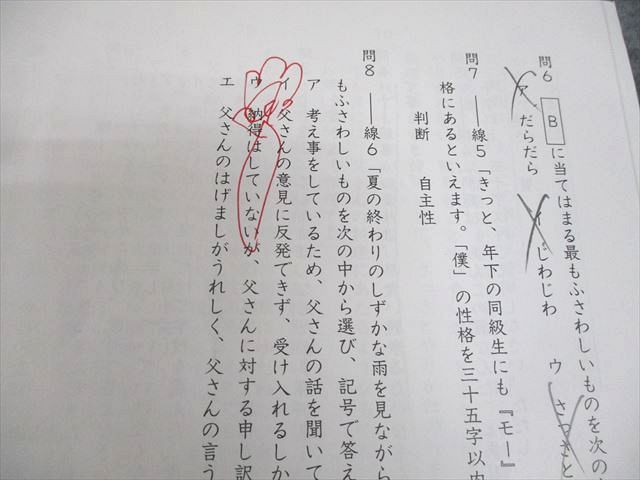 問6 Bに当てはまる最もふさわしいものを次の
ア だらだら イ じわじわ ウ さっさと
問7 ――線5「きっと、年下の同級生にも『モー』
格にあるといえます。「僕」の性格を三十五字以内
判断 自主性
問8 ――線6「夏の終わりのしずかな雨を見ながら
もふさわしいものを次の中から選び、記号で答え
ア 考え事をしているため、父さんの話を聞いて
イ 父さんの意見に反発できず、受け入れるしか
ウ 納得はしていないが、父さんに対する申し訳
エ 父さんのはげましがうれしく、父さんの言う